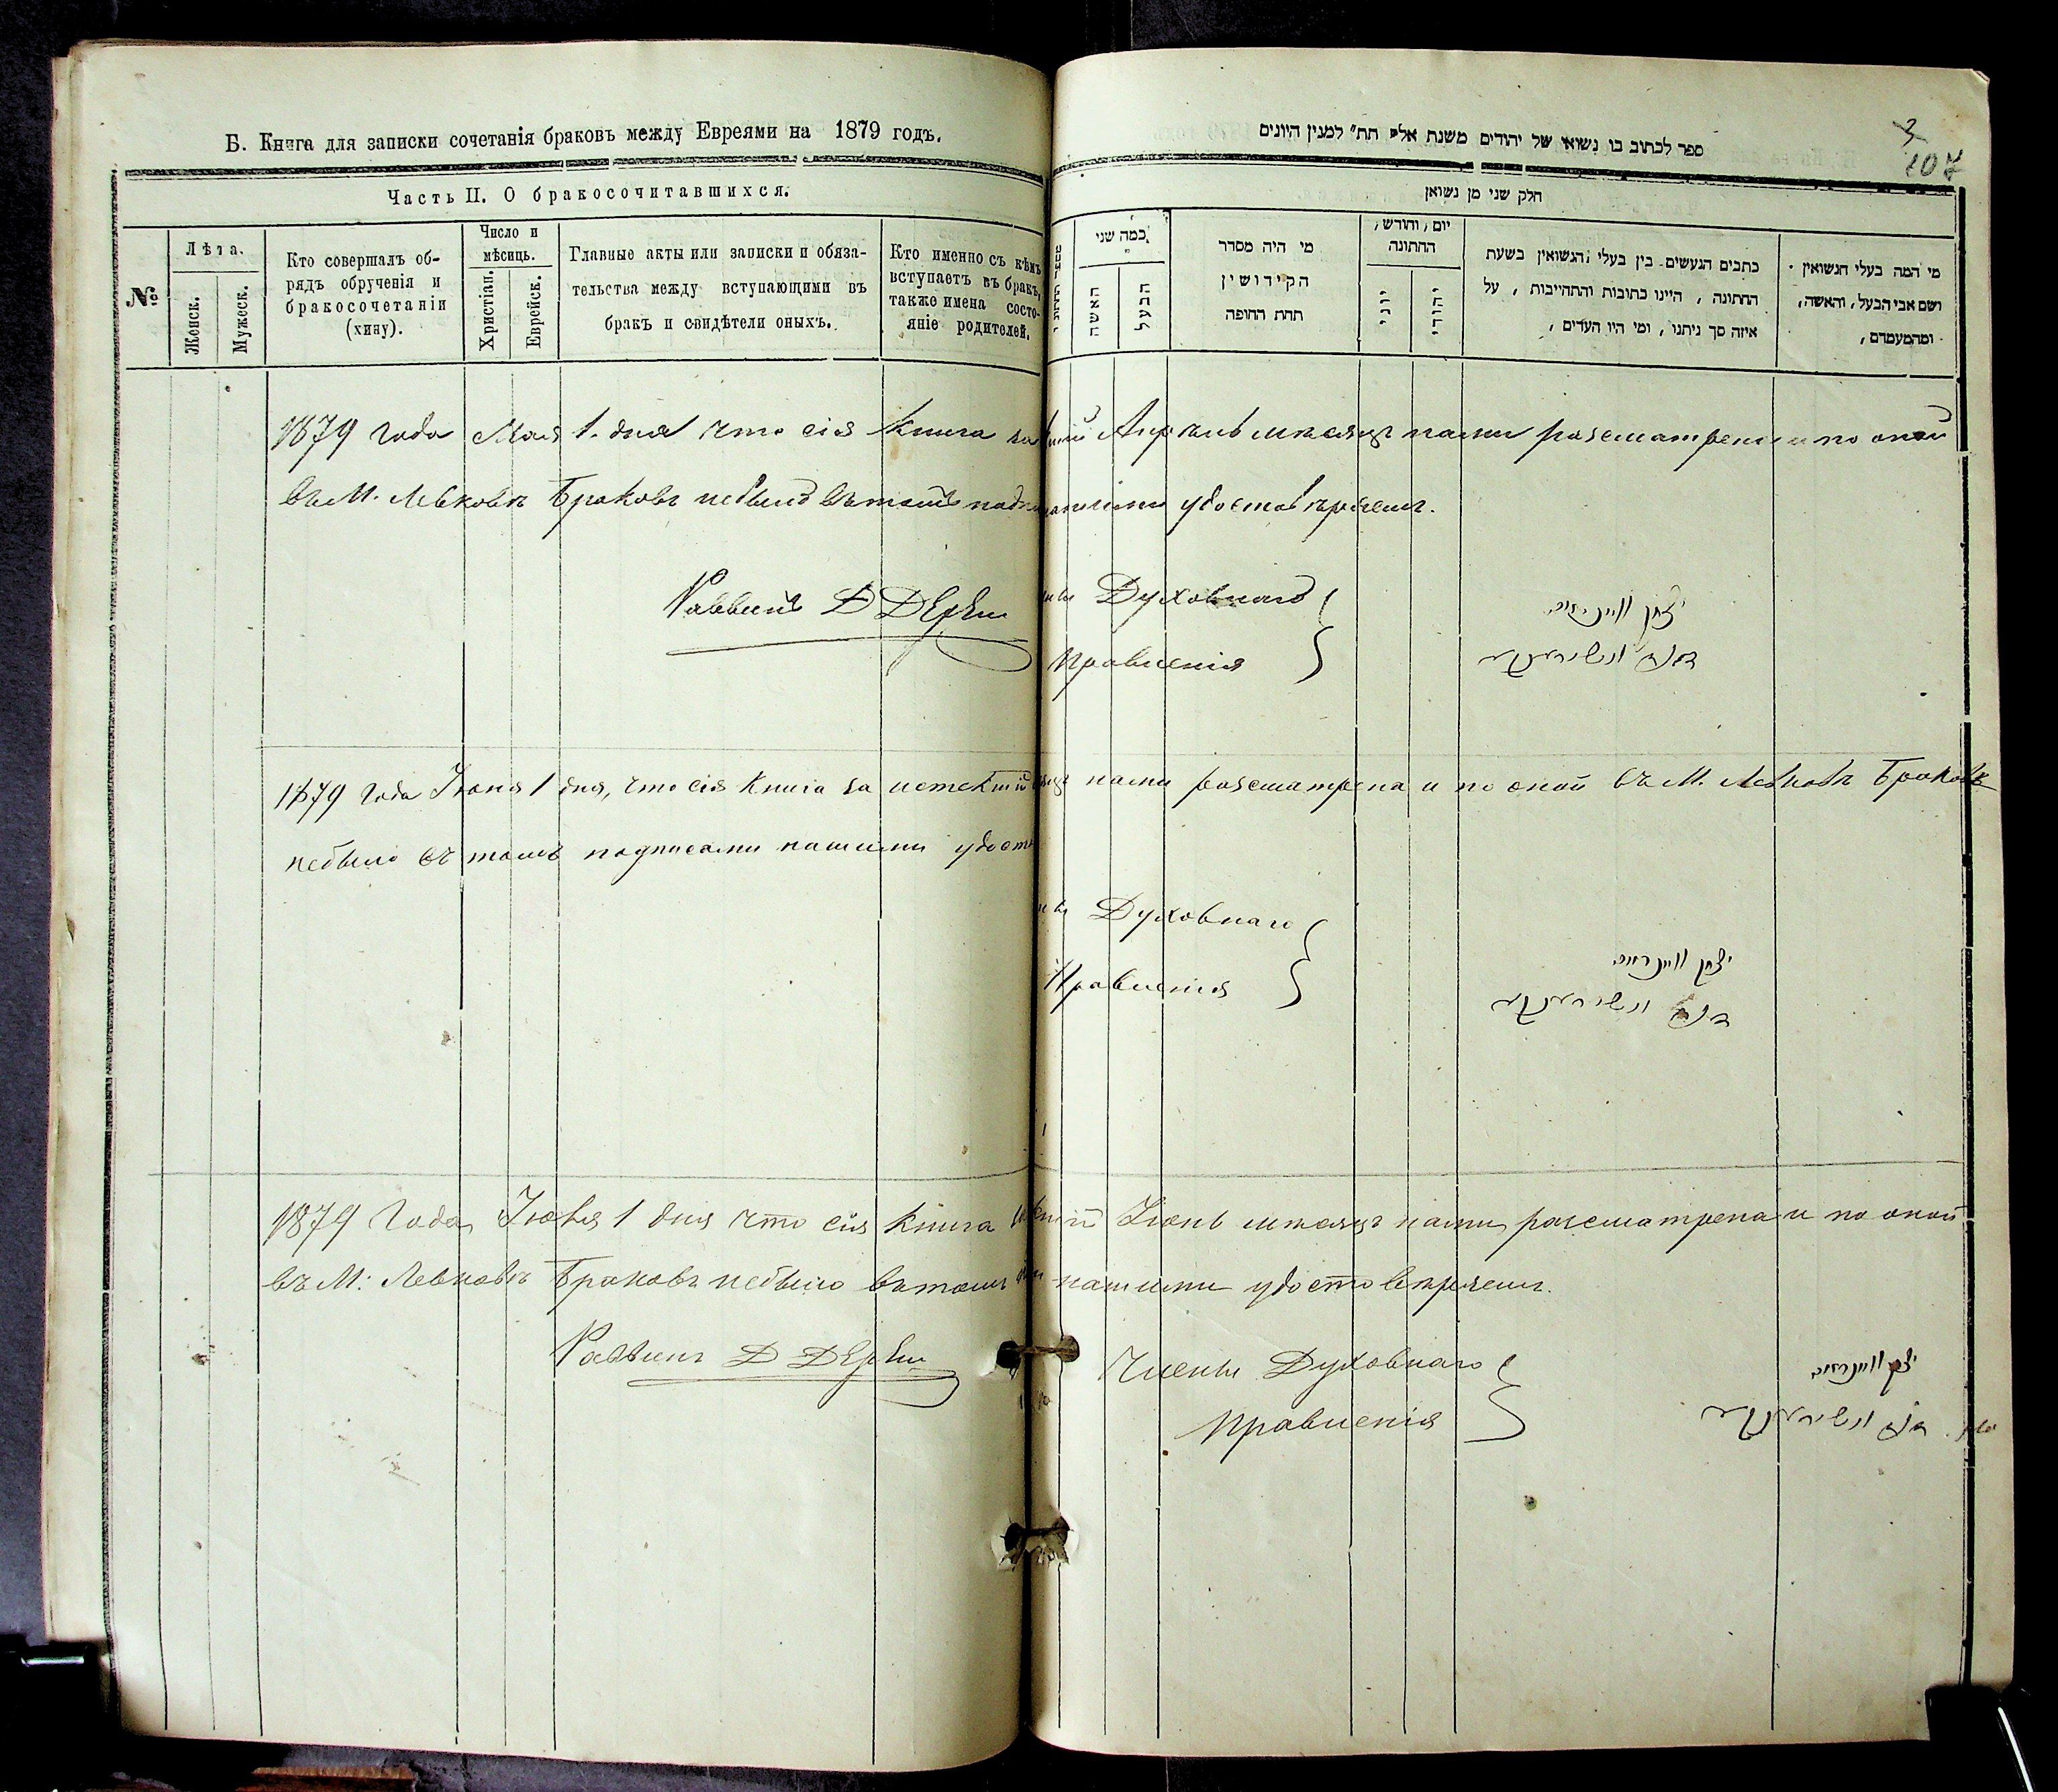 Б. Книга для записки сочетанія браковъ между Евреями на 1879 годъ.
Часть II. О бракосочитавшихся.
№
Лѣта.
Женск.
Мужеск.
Кто совершалъ об-
рядъ обрученія и
бракосочетанія
(хину).
Число и
мѣсяць.
Христіан.
Еврейск.
Главные акты или записки и обяза-
тельства между вступающими въ
бракъ и свидѣтели оныхъ.
Кто именно съ кѣмъ
вступаетъ въ бракъ,
также имена состо-
яніе родителей.
ספר לכתוב בו נשואי של יהודים משנת אלף תת״ למנין היונים
3
107
חלק שני מן נשואן
כמה שני
האשה
הבעל
מי היה מסדר
הקידושין
תחת החופה
יום, וחודש,
החתונה
יוני
יהודי
כתבים הנעשים בין בעלי הנשואין בשעת
החתונה, היינו כתובות והתחייבות, על
איזה סך ניתנו, ומי היו העדים,
מי המה בעלי הנשואין
ושם אבי הבעל, והאשה,
ומהמעמדם,
1879 года Мая 1. дня что сія Книга за Апрѣль мѣсяцъ нами розсматрена и по оной
въ М. Левковѣ Браковъ небыло въ томъ удостовѣряемъ.
Раввинъ Д Духовнаго
Правленія
1879 года Іюня 1 дня, что сія Книга за истекшій нами розсматрена и по оной въ М. Левковѣ Браковъ
небыло въ томъ подписами нашими
Духовнаго
Правленія
1879 Года 1 дня что сія Книга Іюнь мѣсяцъ нами розсматрена и по оной
въ М: Левковѣ Браковъ небыло въ томъ нашими удостовѣряемъ.
Раввинъ Д Члены Духовнаго
Правленія